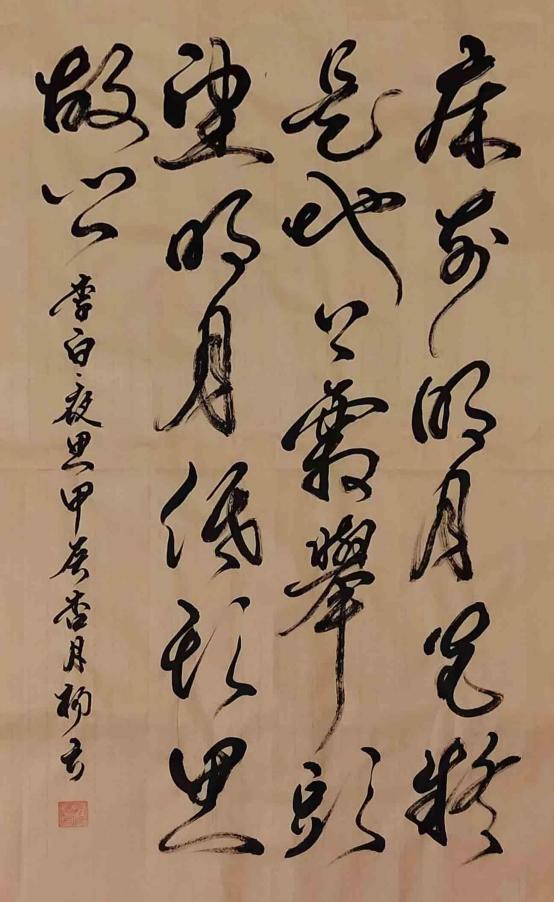 床前明月光疑
是地上霜舉頭
望明月低頭思
故鄉
李白夜思甲辰杏月柳